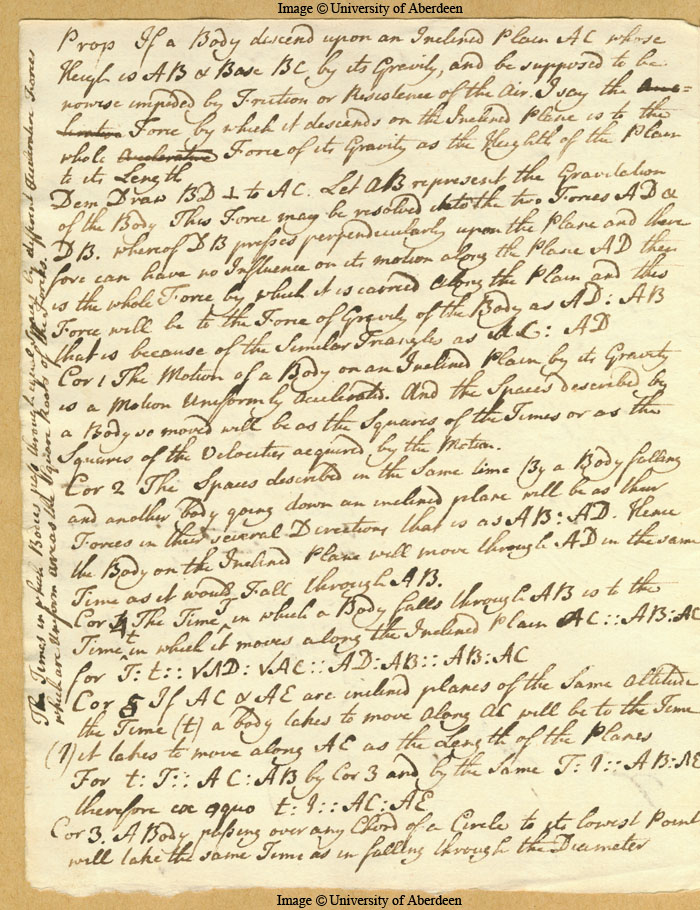 Image © University of Aberdeen
Prop If a Body descend upon an Inclined Plain AC whose
Heigh is AB & Base BC by its Gravity, and be supposed to be
nowise impeded by Friction or Resistence of the Air. I say the
Force by which it descends on the Inclined Plane is to the
whole accelerative Force of its Gravity as the Heighth of the Plain
to its Length
Dem Draw BD ⊥ to AC. Let AB represent the Gravitation
of the Body This Force may be resolved into the two Forces AD &
DB. whereof DB presses perpendicularly upon the Plane and there
fore can have no Influence on its motion along the Plane AD then
is the whole Force by which it is carried along the Plain and this
Force will be to the Force of Gravity of the Body as AD: AB
that is because of the Similar Triangles as : AD
Cor 1 The Motion of a Body on an Inclined Plain by its Gravity
is a Motion Uniformly Acelerated. And the Spaces described by
a Body so moved will be as the Squares of the Times or as the
Squares of the Velocities acquired by the Motion.
Cor 2 The Spaces described in the Same time By a Body falling
and another body going down an inclined plane will be as their
Forces in their several Directions that is as AB: AD. Hence
the Body on the Inclined Plane will move through AD in the same
Time as it would Fall through AB.
Cor 4 The Time T in which a Body falls through AB is to the
Time t in which it moves along the Inclined Plain AC :: AB: AC
for T: t:: √AD: √AC :: AD: AB:: AB: AC
Cor 5 If AC & AE are inclined planes of the Same Altitude
the Time (t) a body takes to move along AC will be to the Time
it takes to move along AC as the Length of the Planes
For t: T:: AC: AB by Cor 3 and by the same T: :: AB: AE
therefore ex æquo t: :: AC: AE
Cor 3. A Body passing over any Chord of a Circle to its lowest Point
will take the same Time as in falling through the Diameter
The Times in which Bodies pass through equal spaces by different Accelerative Forces
which are Uniform are as the Square Roots of the Forces.
Image © University of Aberdeen